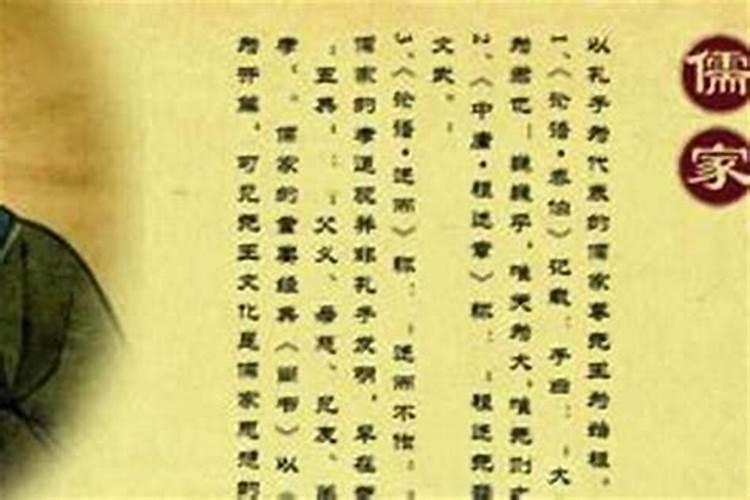 儒家
以孔子为代表的儒家尊尧王为始祖。
1、《论语·泰伯》记载：子曰：“大
为君也！巍巍乎，唯天为大，唯尧则之
2、《中庸·祖述章》称：“祖述尧舜
文武。”
3、《论语·述而》称：“述而不作，
儒家的孝道观并非孔子发明，早在尧
“五典”：“父义、母慈、兄友、弟
孝”。儒家的重要经典《尚书》以“
为开篇，可见尧王文化是儒家思想的